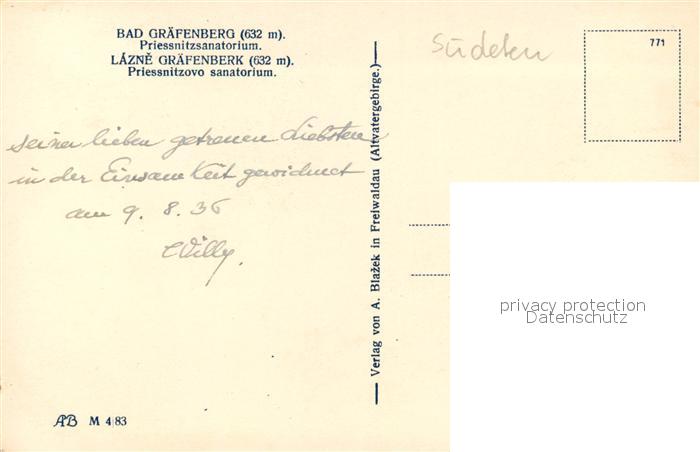 BAD GRÄFENBERG (632 m).
Priessnitzsanatorium.
LÁZNĚ GRÄFENBERK (632 m).
Priessnitzovo sanatorium.
seiner lieben getreuen Liebsten
in der Einsamkeit gewidmet
am 9. 8. 36
Willy.
AB M 4|83
Verlag von A. Blažek in Freiwaldau (Altvatergebirge.)
Sudeten
771
privacy protection
Datenschutz